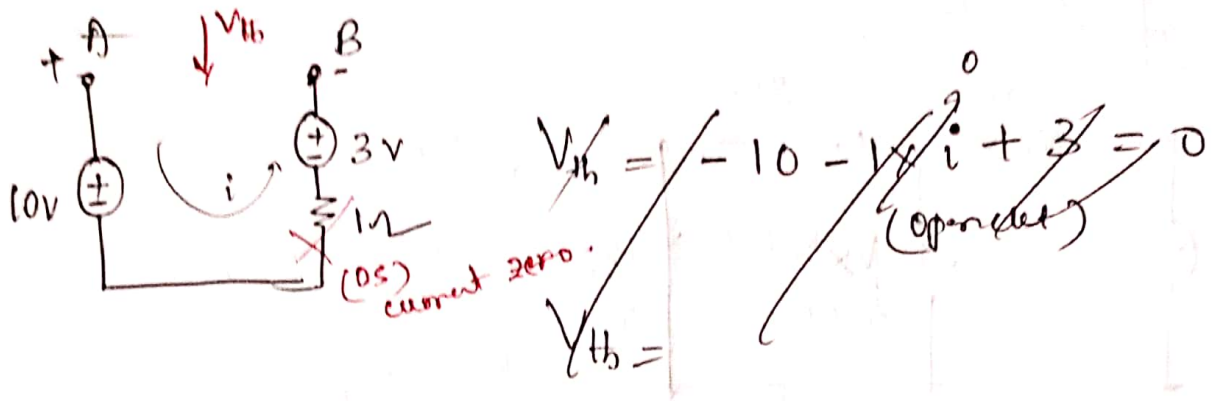 A
↓ Vth
B
+
-
10V
±
i
±
3V
1Ω
(OS)
current zero.
0
Vth = - 10 - 1x i + 3 = 0
(open ckt)
Vth =